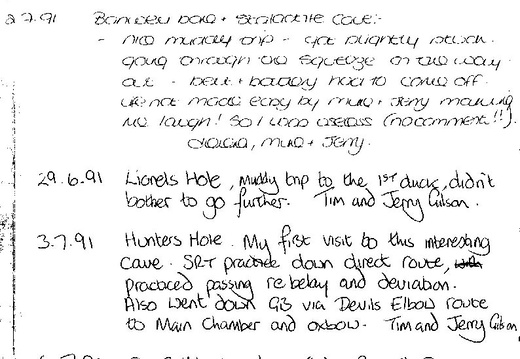 2.7.91 Banwell bone + stalactite cave:-
- nice muddy trip - got slightly stuck
going through the squeeze on the way
out - belt + battery had to come off.
Life not made easy by Mike + Jerry making
me laugh! So I was useless (no comment!!).
Mike + Jerry.
29.6.91 Lionels Hole, Muddy trip to the 1ST duck, didn't
bother to go further. Tim and Jerry Gilson.
3.7.91 Hunters Hole. My first visit to this interesting
cave. SRT practice down direct route,
practiced passing rebelay and deviation.
Also went down GB via Devils Elbow route
to Main Chamber and oxbow. Tim and Jerry Gilson